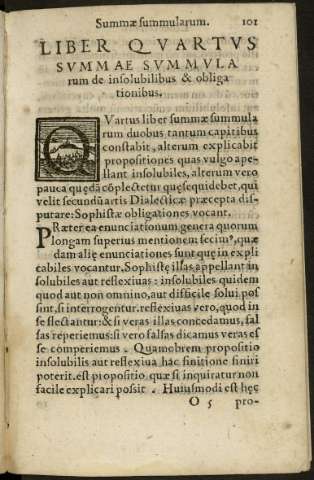 Summæ summularum. 101
LIBER QVARTVS
SVMMAE SVMMVLA
rum de insolubilibus & obliga
tionibus.
QVartus liber summæ summula
rum duobus tantum capitibus
constabit, alterum explicabit
propositiones quas vulgo apel
lant insolubiles, alterum vero
pauca quędā cōplectetur quę sequi debet, qui
velit secundū artis Dialecticæ præcepta dis-
putare: Sophistæ obligationes vocant.
PRæter ea enunciationum genera quorum
longam superius mentionem fecim⁹, quæ
dam alię enunciationes sunt quę in expli
cabiles vocantur. Sophistę illas appellant in
solubiles aut reflexiuas: insolubiles quidem
quod aut non omnino, aut difficile solui pos
sint, si interrogentur. reflexiuas vero, quod in
se flectantur: & si veras illas concedamus, fal
sas reperiemus: si vero falsas dicamus veras es
se comperiemus. Quamobrem propositio
insolubilis aut reflexiua hac finitione finiri
poterit. est propositio quæ si inquiratur non
facile explicari possit. Huiusmodi est hęc
O 5 pro-